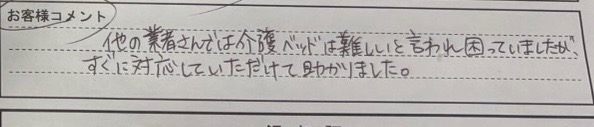 お客様コメント
他の業者さんでは介護ベッドは難しいと言われ困っていましたが、
すぐに対応していただけて助かりました。